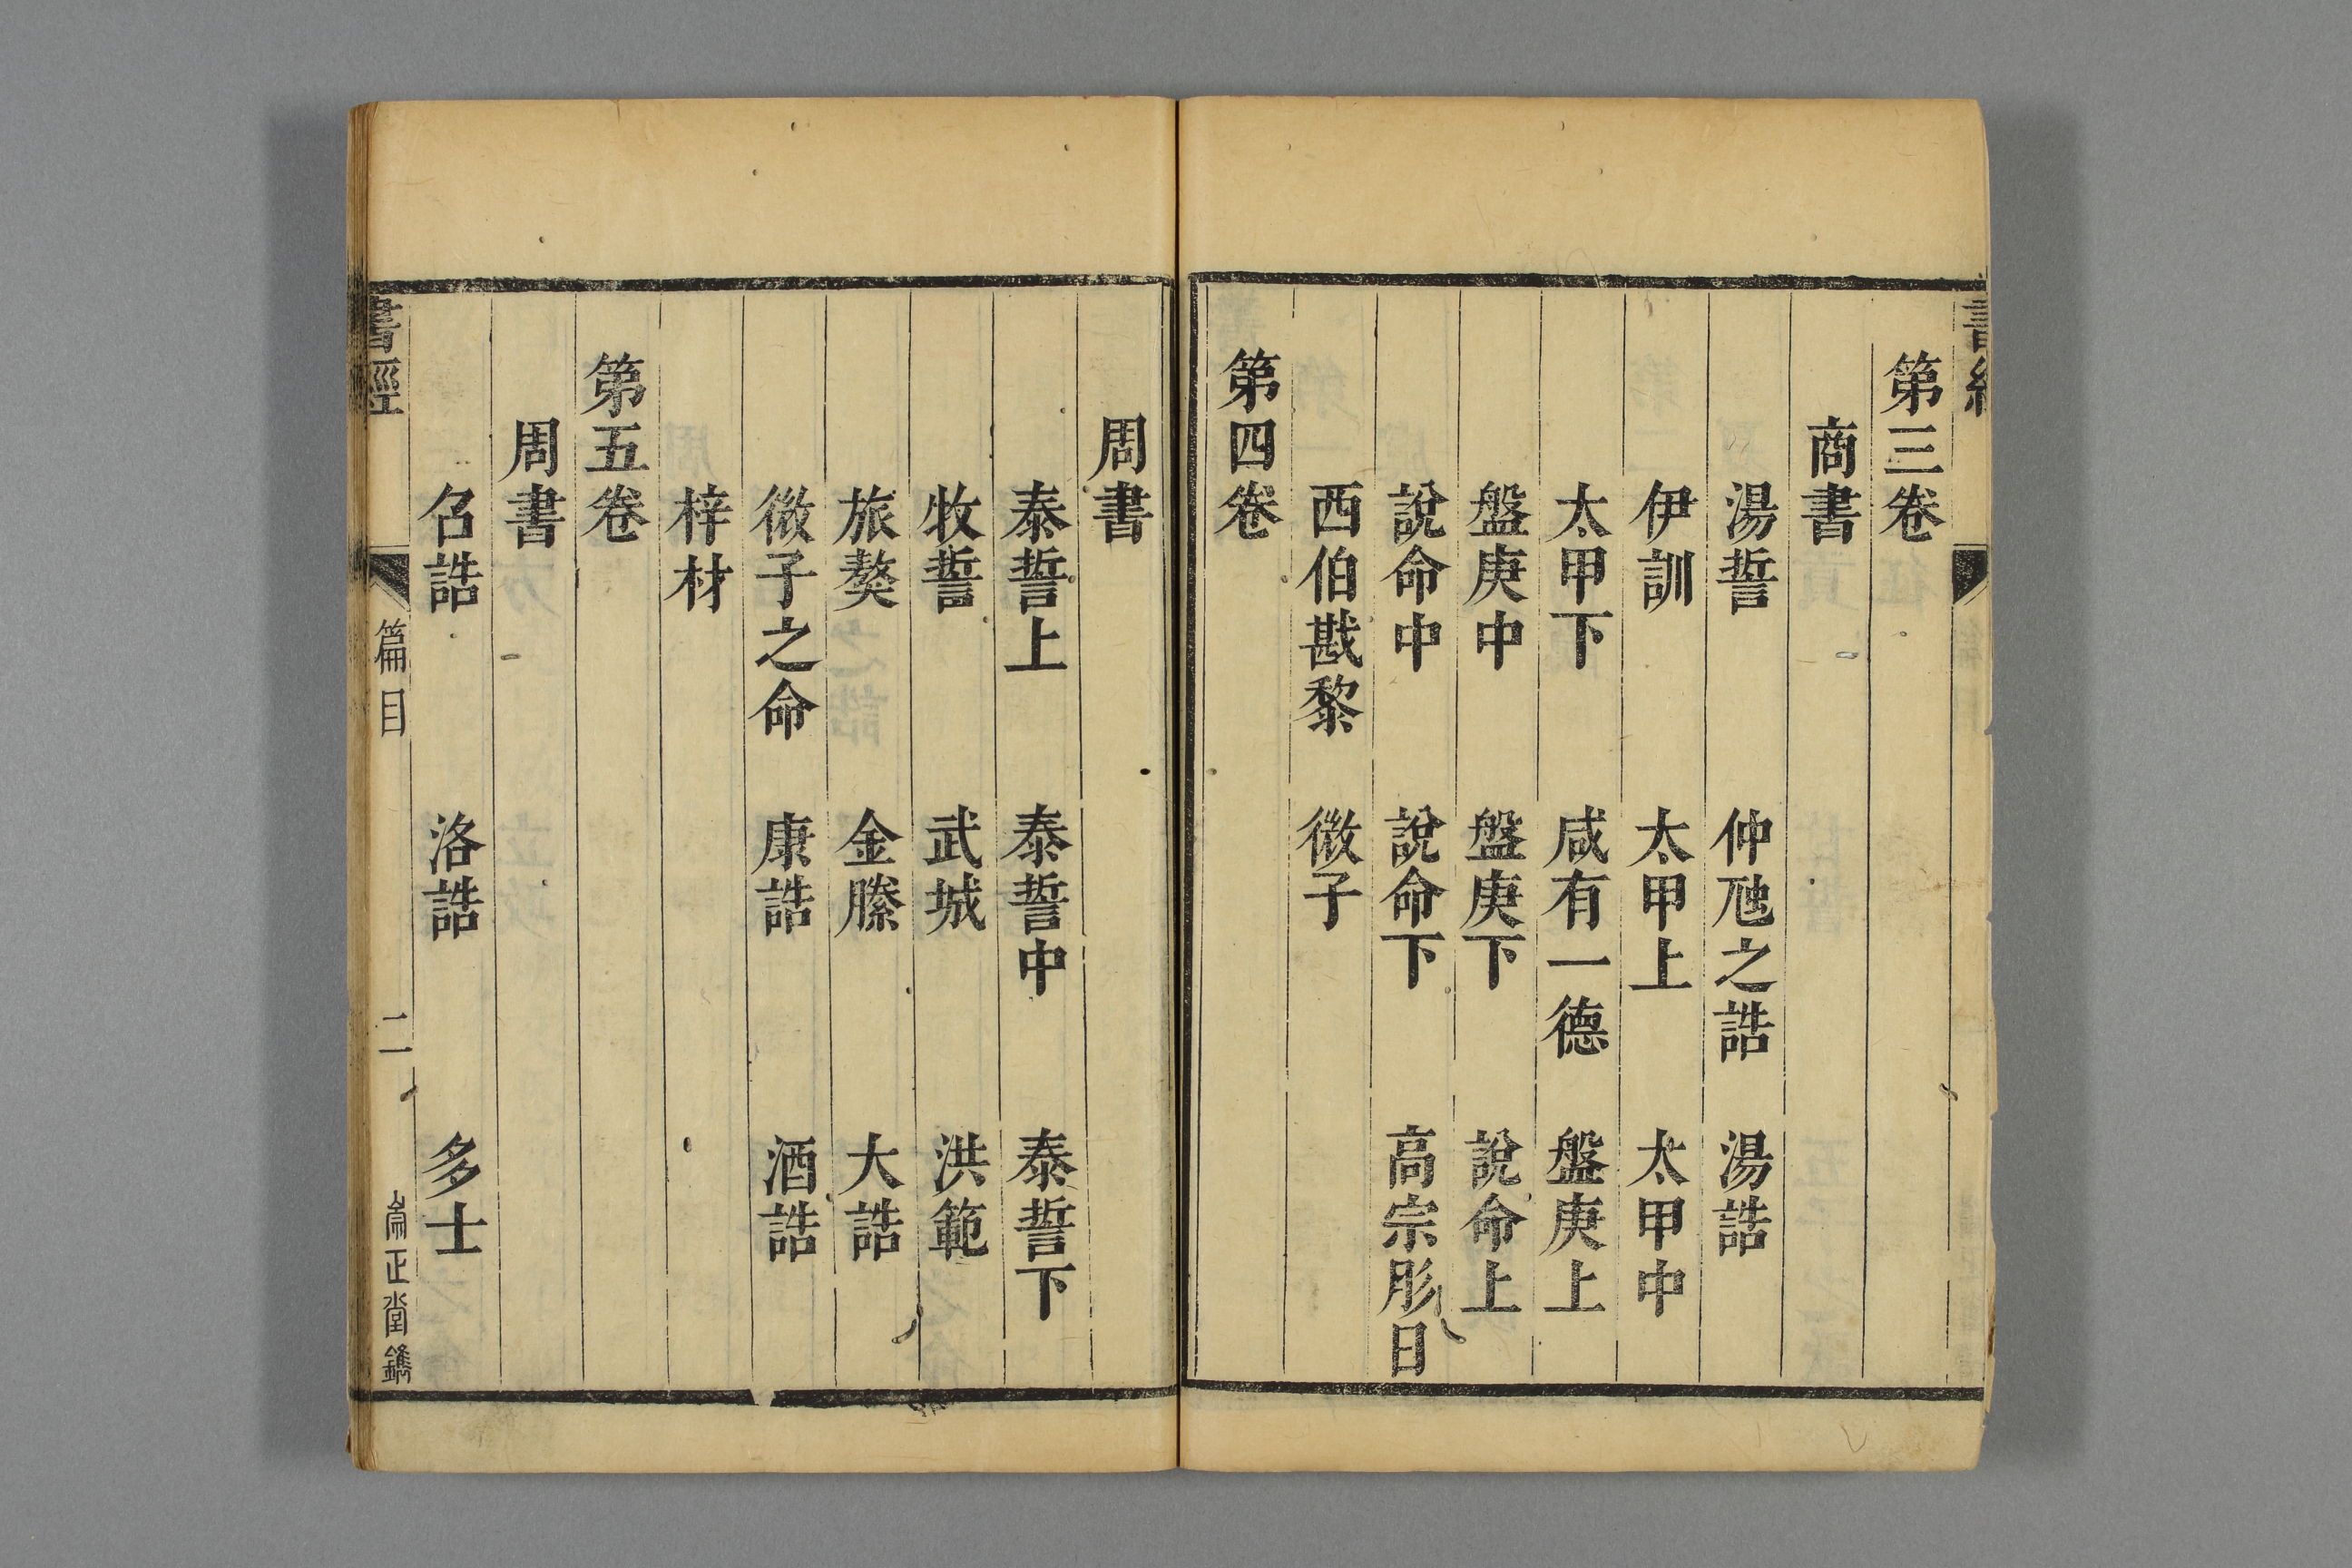 第三卷
商書
湯誓　仲虺之誥　湯誥
伊訓　太甲上　太甲中
太甲下　咸有一德　盤庚上
盤庚中　盤庚下　說命上
說命中　說命下　高宗肜日
西伯戡黎　微子
第四卷
周書
泰誓上　泰誓中　泰誓下
牧誓　武城　洪範
旅獒　金縢　大誥
微子之命　康誥　酒誥
梓材
第五卷
周書
召誥　洛誥　多士
書經　篇目　二　崇正堂鐫